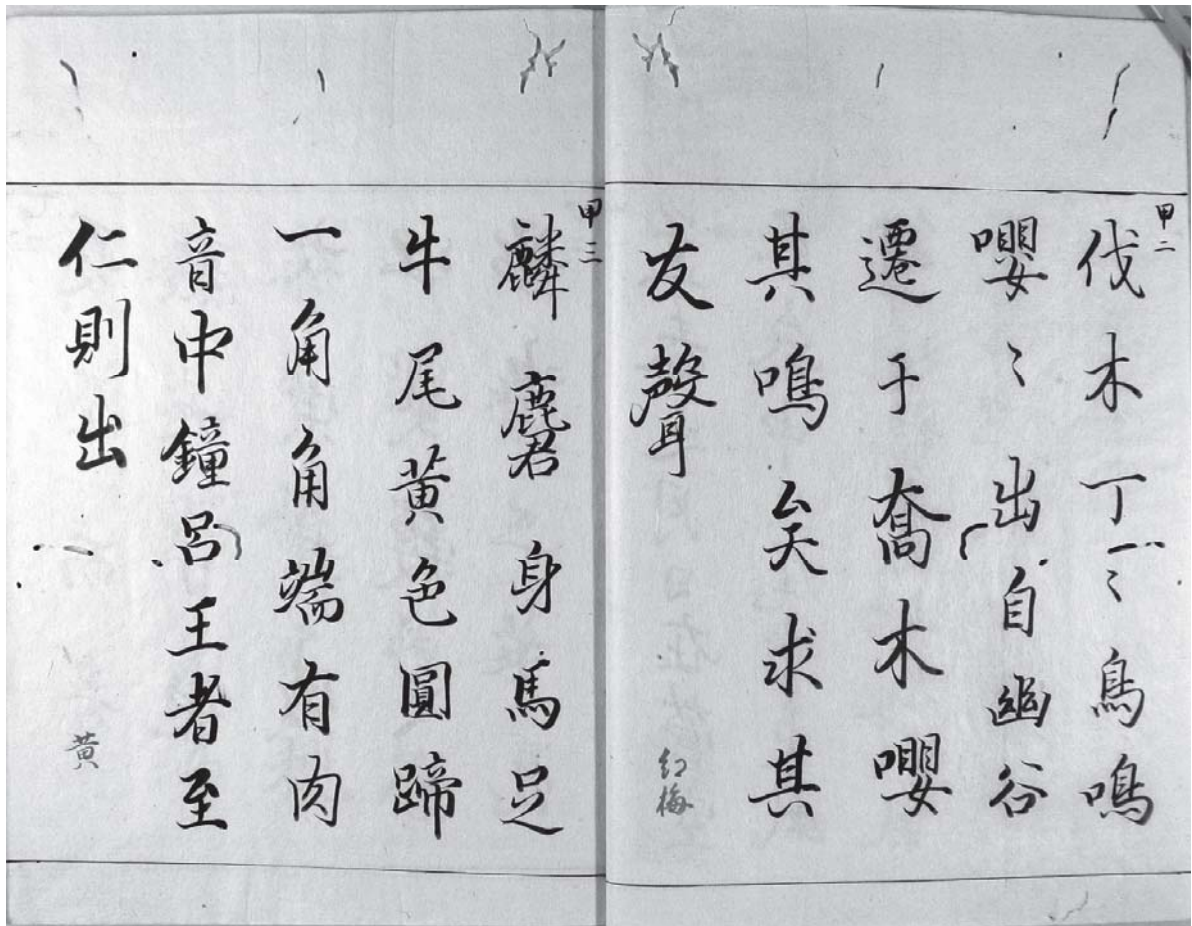 甲二
伐木丁〻鳥鳴
嚶〻出自幽谷
遷于喬木嚶
其鳴矣求其
友聲
紅梅
甲三
麟麕身馬足
牛尾黄色圓蹄
一角角端有肉
音中鐘呂王者至
仁則出
黄